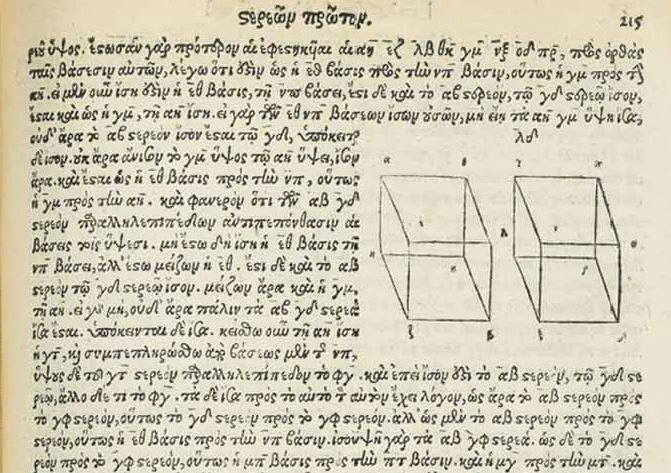 στερεῶν πρῶτον. 215
ὕψος. ἔστωσαν γὰρ πρότερον αἱ ἐφεστηκῆαι αἱ αη εζ λβ θκ γμ νξ οδ πρ, πρὸς ὀρθὰς
ταῖς βάσεσιν αὐτῶν, λέγω ὅτι ἐστὶν ὡς ἡ εθ βάσις πρὸς τὴν νπ βάσιν, οὕτως ἡ γμ πρὸς τὴν
αη. εἰ μὲν οὖν ἴση ἐστὶν ἡ εθ βάσις, τῇ νπ βάσει, ἔστι δὲ καὶ τὸ αβ στερεόν, τῷ γδ στερεῷ ἴσον,
ἔσται καὶ ὡς ἡ γμ, τῇ αη ἴση. εἰ γὰρ τῶν εθ νπ βάσεων ἴσων οὐσῶν, μὴ εἴη τὰ αη γμ ὕψη ἴσα,
οὐδ' ἄρα τὸ αβ στερεὸν ἴσον ἔσται τῷ γδ, ὑπόκειται
δὲ ἴσον. οὐκ ἄρα ἄνισον τὸ γμ ὕψος τῷ αη ὕψει, ἴσον
ἄρα. καὶ ἔσται ὡς ἡ εθ βάσις πρὸς τὴν νπ, οὕτως
ἡ γμ πρὸς τὴν αη. καὶ φανερὸν ὅτι τῶν αβ γδ
στερεῶν παραλληλεπιπέδων ἀντιπεπόνθασιν αἱ
βάσεις τοῖς ὕψεσι. μὴ ἔστω δὴ ἴση ἡ εθ βάσις τῇ
νπ βάσει, ἀλλ' ἔστω μείζων ἡ εθ. ἔστι δὲ καὶ τὸ αβ
στερεὸν τῷ γδ στερεῷ ἴσον. μείζων ἄρα καὶ ἡ γμ,
τῆς αη. εἰ γὰρ μή, οὐδ' ἄρα πάλιν τὰ αβ γδ στερεὰ
ἴσα ἔσται. ὑπόκειται δὲ ἴσα. κείσθω οὖν τῇ αη ἴση
ἡ γτ, καὶ συμπεπληρώσθω ἀπὸ βάσεως μὲν τῆς νπ,
ὕψους δὲ τοῦ γτ στερεὸν παραλληλεπίπεδον τὸ φγ. καὶ ἐπεὶ ἴσον ἐστὶ τὸ αβ στερεὸν, τῷ γδ στε
ρεῷ, ἄλλο δέ τι τὸ φγ. τὰ δὲ ἴσα πρὸς τὸ αὐτὸ τὸν αὐτὸν ἔχει λόγον, ὡς ἄρα τὸ αβ στερεὸν πρὸς
τὸ γφ στερεόν, οὕτως τὸ γδ στερεὸν πρὸς τὸ γφ στερεόν. ἀλλ' ὡς μὲν τὸ αβ στερεὸν πρὸς τὸ γφ
στερεόν, οὕτως ἡ εθ βάσις πρὸς τὴν νπ βάσιν. ἰσουψῆ γὰρ τὰ αβ γφ στερεά. ὡς δὲ τὸ γδ στε
ρεὸν πρὸς τὸ γφ στερεόν, οὕτως ἡ μπ βάσις πρὸς τὴν πτ βάσιν. καὶ ἡ μγ πρὸς τὴν μτ. καὶ
λδ